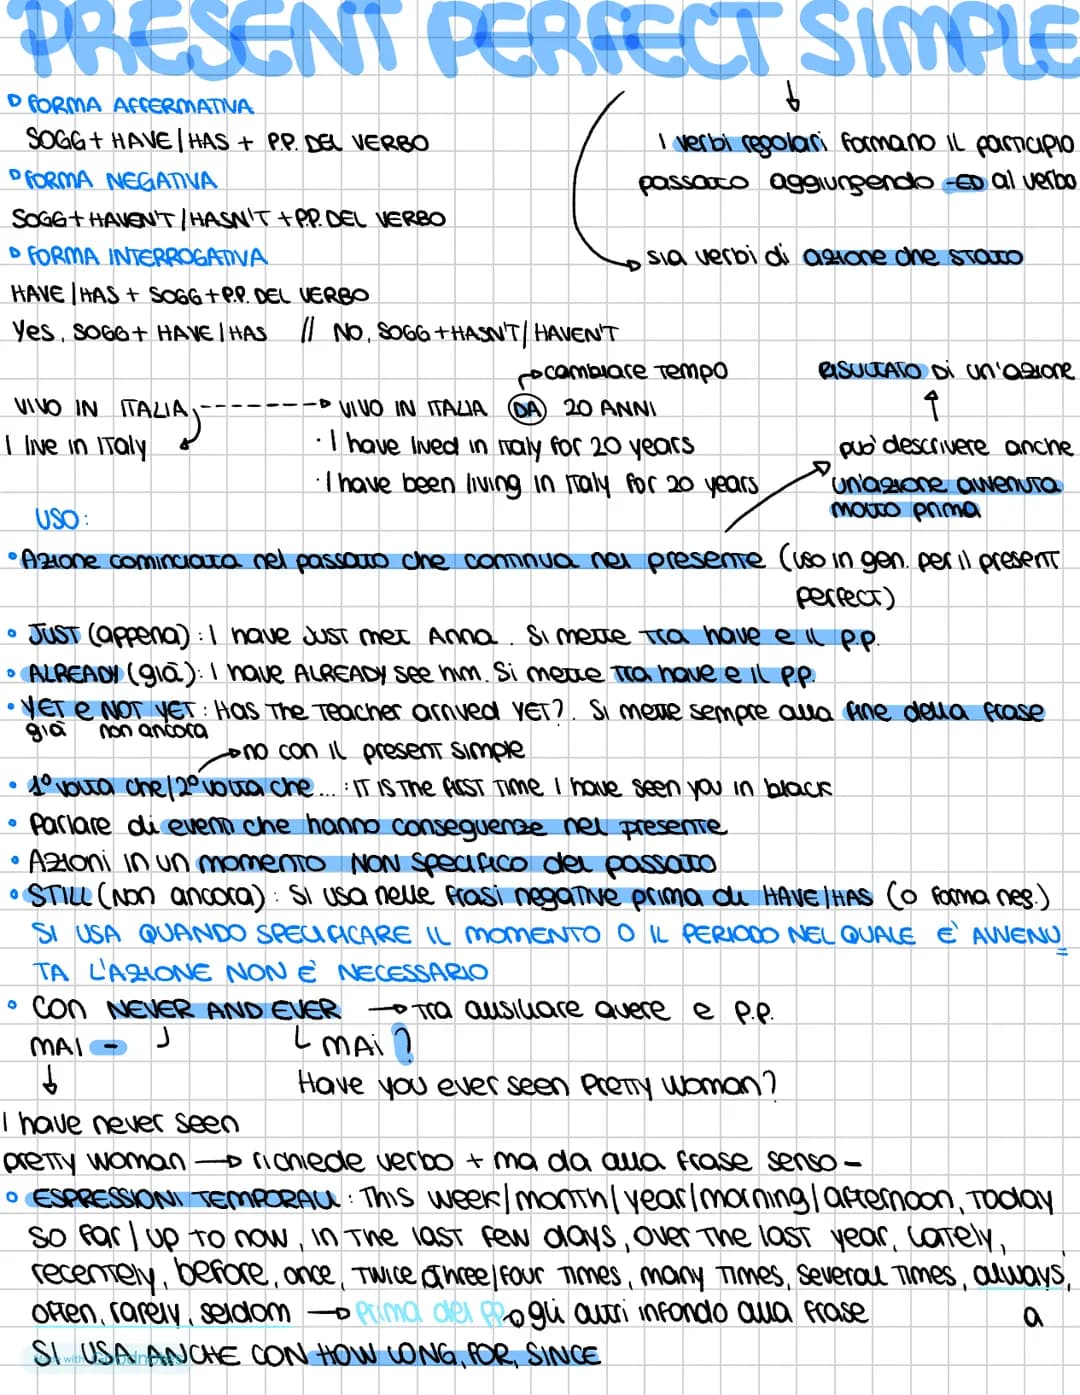 PRESENT PERFECT SIMPLE
FORMA AFFERMATIVA
SOGG + HAVE / HAS + P.P. DEL VERBO
I verbi regolari formano IL participio
passato aggiungendo -ED al verbo
FORMA NEGATIVA
SOGG + HAVEN'T / HASN'T + P.P. DEL VERBO
FORMA INTERROGATIVA
sia verbi di azione che stato
HAVE / HAS + SOGG + P.P. DEL VERBO
Yes, SOGG + HAVE / HAS // NO, SOGG + HASN'T / HAVEN'T
cambiare tempo
RISULTATO DI un'azione
VIVO IN ITALIA
VIVO IN ITALIA DA 20 ANNI
I live in Italy
· I have lived in Italy for 20 years
può descrivere anche
un'azione avvenuta
molto prima
· I have been living in Italy for 20 years
USO:
• Azione cominciata nel passato che continua nel presente (uso in gen. per il present
perfect)
• JUST (appena) : I have just met Anna. Si mette tra have e il p.p.
• ALREADY (già) : I have ALREADY see him. Si mette tra have e il p.p.
• YET e NOT YET : Has the teacher arrived YET?. Si mette sempre alla fine della frase
già non ancora
no con il present simple
• 1° volta che / 2° volta che ... : IT IS THE FIRST TIME I have seen you in black
• Parlare di eventi che hanno conseguenze nel presente
• Azioni in un momento NON specifico del passato
• STILL (non ancora) : Si usa nelle frasi negative prima di HAVE / HAS (o forma neg.)
SI USA QUANDO SPECIFICARE IL MOMENTO O IL PERIODO NEL QUALE E' AVVENU
TA L'AZIONE NON È NECESSARIO
• CON NEVER AND EVER → tra ausiliare avere e p.p.
MAI - MAI ?
Have you ever seen Pretty Woman?
I have never seen
pretty woman → richiede verbo + ma da alla frase senso -
• ESPRESSIONI TEMPORALI : This week / month / year / morning / afternoon, today
so far / up to now, in the last few days, over the last year, lately,
recentely, before, once, twice, three / four times, many times, several times, always,
often, rarely, seldom → prima del pp o gli altri infondo alla frase a
SI USA ANCHE CON HOW LONG, FOR, SINCE
Made with Goodnotes